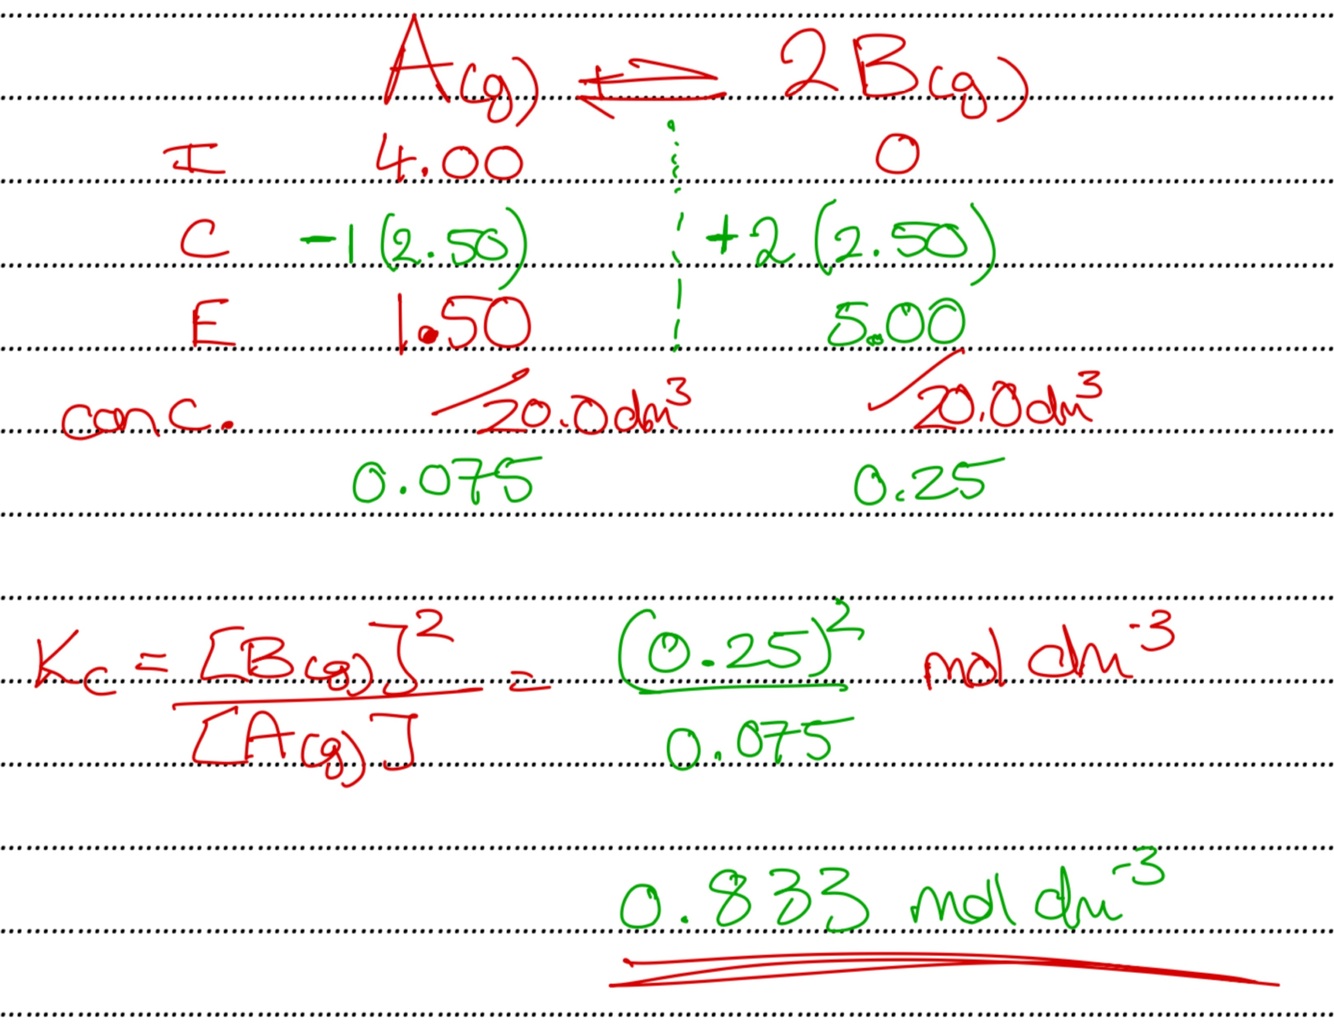 A(g) ⇌ 2B(g)
I 4.00 0
C -1(2.50) +2(2.50)
E 1.50 5.00
conc. /20.0dm³ /20.0dm³
0.075 0.25
Kc = [B(g)]² / [A(g)] = (0.25)² / 0.075 mol dm⁻³
0.833 mol dm⁻³